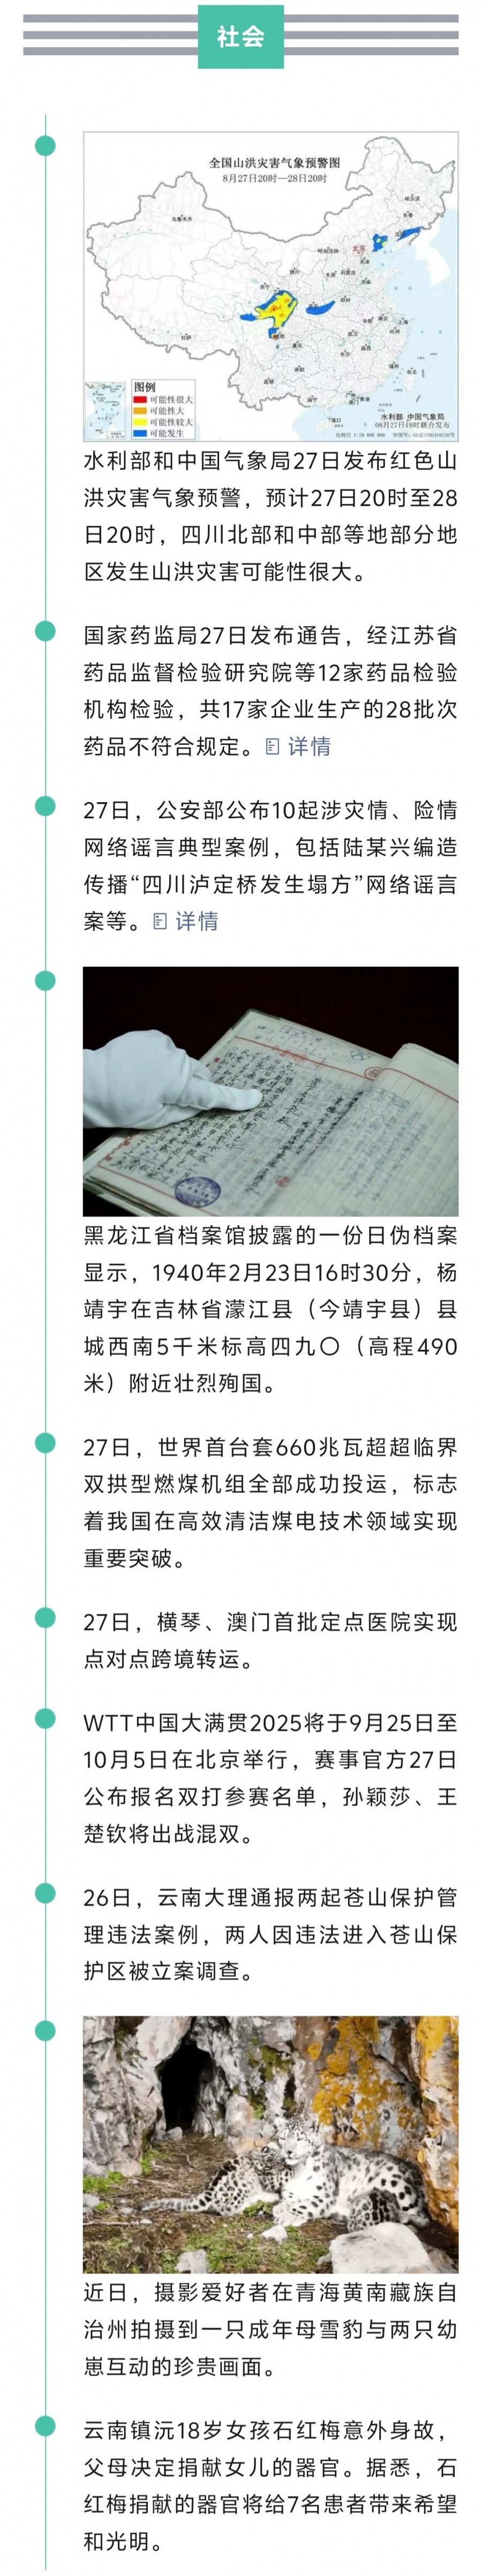 社会
全国山洪灾害气象预警图
8月27日20时—28日20时
图例
可能性很大
可能性大
可能性较大
可能发生
水利部 中国气象局
08月27日18时联合发布
水利部和中国气象局27日发布红色山
洪灾害气象预警，预计27日20时至28
日20时，四川北部和中部等地部分地
区发生山洪灾害可能性很大。
国家药监局27日发布通告，经江苏省
药品监督检验研究院等12家药品检验
机构检验，共17家企业生产的28批次
药品不符合规定。详情
27日，公安部公布10起涉灾情、险情
网络谣言典型案例，包括陆某兴编造
传播“四川泸定桥发生塌方”网络谣言
案等。详情
黑龙江省档案馆披露的一份日伪档案
显示，1940年2月23日16时30分，杨
靖宇在吉林省濛江县（今靖宇县）县
城西南5千米标高四九〇（高程490
米）附近壮烈殉国。
27日，世界首台套660兆瓦超超临界
双拱型燃煤机组全部成功投运，标志
着我国在高效清洁煤电技术领域实现
重要突破。
27日，横琴、澳门首批定点医院实现
点对点跨境转运。
WTT中国大满贯2025将于9月25日至
10月5日在北京举行，赛事官方27日
公布报名双打参赛名单，孙颖莎、王
楚钦将出战混双。
26日，云南大理通报两起苍山保护管
理违法案例，两人因违法进入苍山保
护区被立案调查。
近日，摄影爱好者在青海黄南藏族自
治州拍摄到一只成年母雪豹与两只幼
崽互动的珍贵画面。
云南镇沅18岁女孩石红梅意外身故，
父母决定捐献女儿的器官。据悉，石
红梅捐献的器官将给7名患者带来希望
和光明。